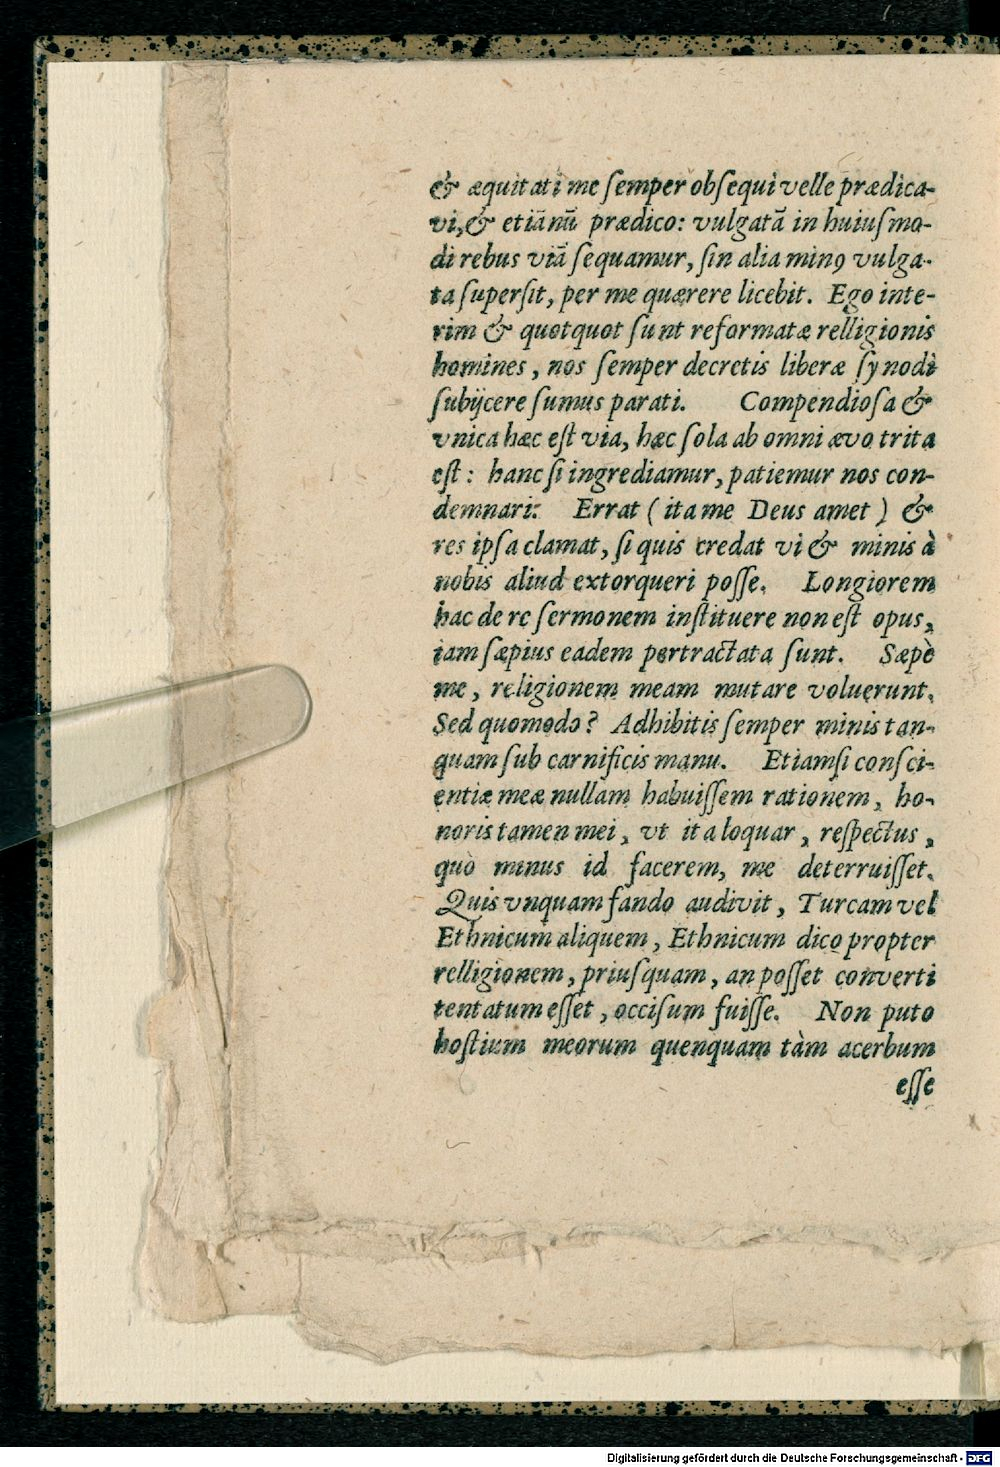 & æquitati me ſemper obſequi velle prædica-
vi, & etiā nū prædico: vulgatā in huiuſmo-
di rebus viā ſequamur, ſin alia minꝰ vulga-
ta ſuperſit, per me quærere licebit. Ego inte-
rim & quotquot ſunt reformatæ relligionis
homines, nos ſemper decretis liberæ ſynodi
ſubijcere ſumus parati. Compendioſa &
vnica hæc eſt via, hæc ſola ab omni ævo trita
eſt: hanc ſi ingrediamur, patiemur nos con-
demnari: Errat (ita me Deus amet) &
res ipſa clamat, ſi quis credat vi & minis à
nobis aliud extorqueri poſſe. Longiorem
hac de re ſermonem inſtituere non eſt opus,
iam ſæpius eadem pertractata ſunt. Sæpè
me, religionem meam mutare voluerunt.
Sed quomodo? Adhibitis ſemper minis tan-
quam ſub carnificis manu. Etiamſi conſci-
entiæ meæ nullam habuiſſem rationem, ho-
noris tamen mei, vt ita loquar, reſpectus,
quò minus id facerem, me deterruiſſet.
Quis vnquam fando audivit, Turcam vel
Ethnicum aliquem, Ethnicum dico propter
relligionem, priuſquam, an poſſet converti
tentatum eſſet, occiſum fuiſſe. Non puto
hoſtium meorum quenquam tàm acerbum
eſſe
Digitalisierung gefördert durch die Deutsche Forschungsgemeinschaft - DFG